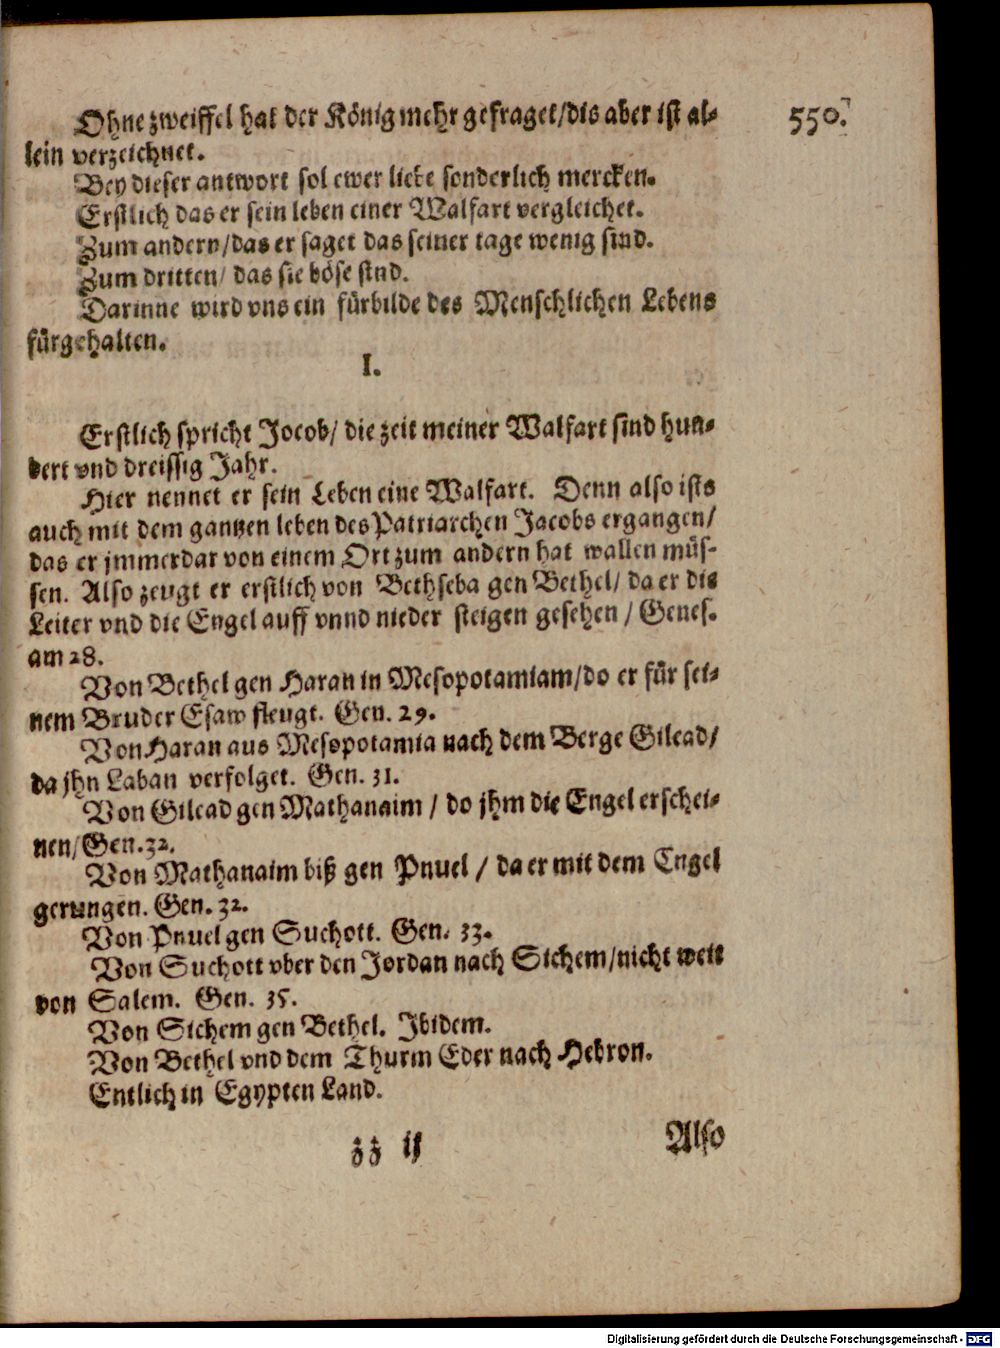 550.
Ohne zweiffel hat der König mehr gefraget/dis aber ist al-
lein verzeichnet.
Bey dieser antwort sol ewer liebe sonderlich mercken.
Erstlich das er sein leben einer Walfart vergleichet.
Zum andern/das er saget das seiner tage wenig sind.
Zum dritten/ das sie böse sind.
Darinne wird vns ein fürbilde des Menschlichen Lebens
fürgehalten.
I.
Erstlich spricht Jocob/ die zeit meiner Walfart sind hun-
dert vnd dreissig Jahr.
Hier nennet er sein Leben eine Walfart. Denn also ists
auch mit dem gantzen leben des Patriarchen Jacobs ergangen/
das er jmmerdar von einem Ort zum andern hat wallen müs-
sen. Also zeugt er erstlich von Bethseba gen Bethel/ da er die
Leiter vnd die Engel auff vnnd nieder steigen gesehen / Genes.
am 28.
Von Bethel gen Haran in Mesopotamiam/do er für sei-
nem Bruder Esaw fleugt. Gen. 29.
Von Haran aus Mesopotamia nach dem Berge Gilead/
da jhn Laban verfolget. Gen. 31.
Von Gilead gen Mathanaim / do jhm die Engel erschei-
nen/Gen.32.
Von Mathanaim biß gen Pnuel / da er mit dem Engel
gerungen. Gen. 32.
Von Pnuel gen Suchott. Gen. 33.
Von Suchott vber den Jordan nach Sichem/nicht weit
von Salem. Gen. 35.
Von Sichem gen Bethel. Ibidem.
Von Bethel vnd dem Thurm Eder nach Hebron.
Entlich in Egypten Land.
zz ij Also
Digitalisierung gefördert durch die Deutsche Forschungsgemeinschaft - DFG